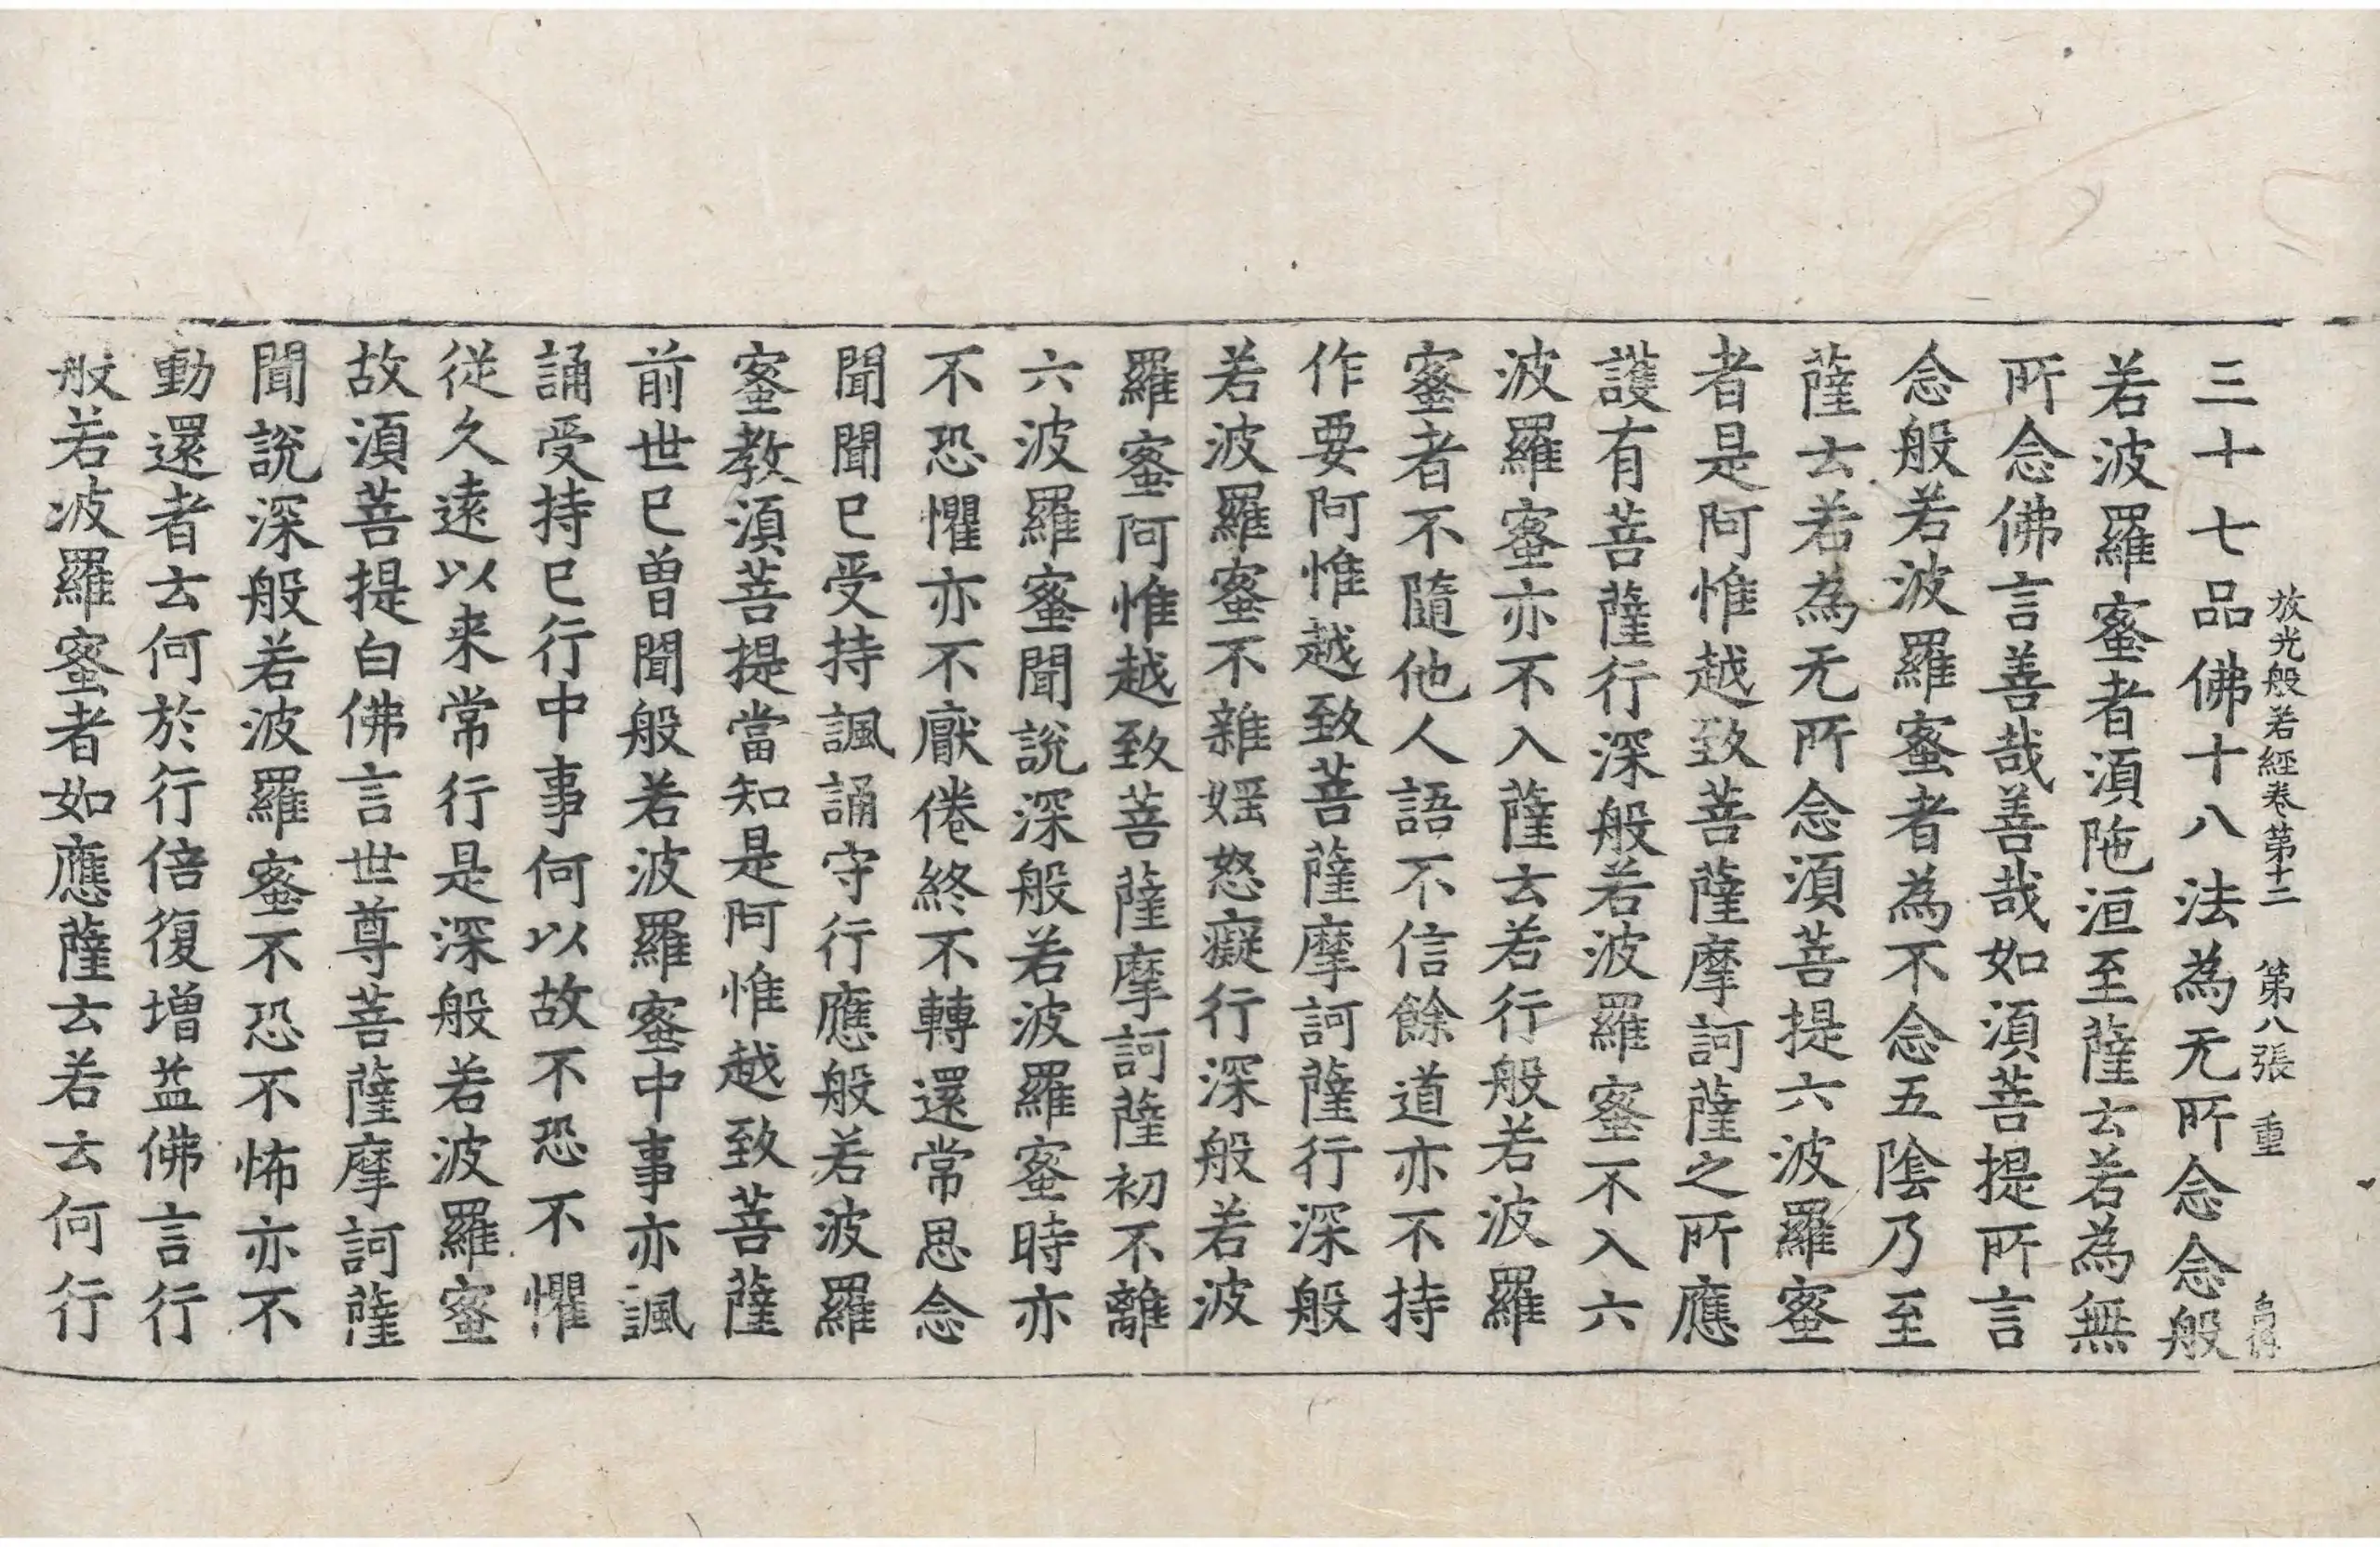 放光般若經卷第十二 第八張 重
三十七品佛十八法為无所念念般
若波羅蜜者須陁洹至薩云若為無
所念佛言善哉善哉如須菩提所言
念般若波羅蜜者為不念五陰乃至
薩云若為无所念須菩提六波羅蜜
者是阿惟越致菩薩摩訶薩之所應
護有菩薩行深般若波羅蜜不入六
波羅蜜亦不入薩云若行般若波羅
蜜者不隨他人語不信餘道亦不持
作要阿惟越致菩薩摩訶薩行深般
若波羅蜜不雜婬怒癡行深般若波
羅蜜阿惟越致菩薩摩訶薩初不離
六波羅蜜聞說深般若波羅蜜時亦
不恐懼亦不厭倦終不轉還常思念
聞聞已受持諷誦守行應般若波羅
蜜教須菩提當知是阿惟越致菩薩
前世已曾聞般若波羅蜜中事亦諷
誦受持已行中事何以故不恐不懼
從久遠以来常行是深般若波羅蜜
故須菩提白佛言世尊菩薩摩訶薩
聞說深般若波羅蜜不恐不怖亦不
動還者云何於行倍復增益佛言行
般若波羅蜜者如應薩云若云何行